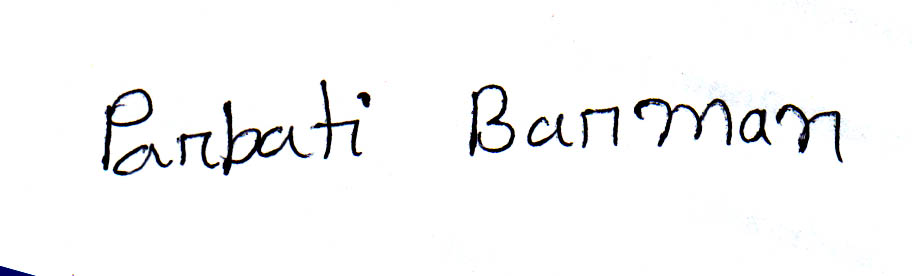 Parbati Barman